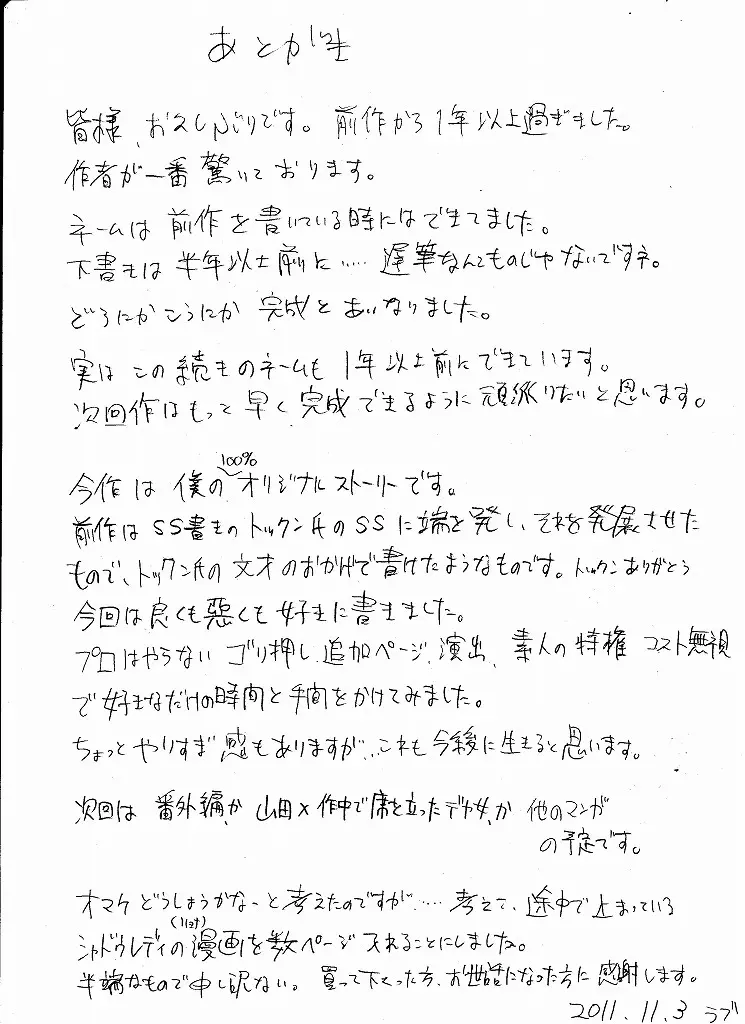 あとがき
皆様、お久しぶりです。前作から1年以上過ぎました。
作者が一番驚いております。
ネームは前作を書いている時にはできてました。
下書きは半年以上前に……遅筆なんてものじゃないですネ。
どうにかこうにか完成とあいなりました。
実はこの続きのネームも1年以上前にできています。
次回作はもっと早く完成できるように頑張りたいと思います。
100%
今作は僕のオリジナルストーリーです。
前作はSS書きのトックン氏のSSに端を発し、それを発展させた
もので、トックン氏の文才のおかげで書けたようなものです。トックンありがとう
今回は良くも悪くも好きに書きました。
プロはやらないゴリ押し、追加ページ、演出、素人の特権コスト無視
で好きなだけの時間と手間をかけてみました。
ちょっとやりすぎ感もありますが、これも今後に生きると思います。
次回は番外編か山田×作中で席を立ったデカ女か他のマンガ
の予定です。
オマケどうしょうかなーと考えたのですが……考えて、途中で止まっている
シャドウレディの漫画を数ページ入れることにしました。
半端なもので申し訳ない。買って下さった方、お世話になった方に感謝します。
2011.11.3 ラブ